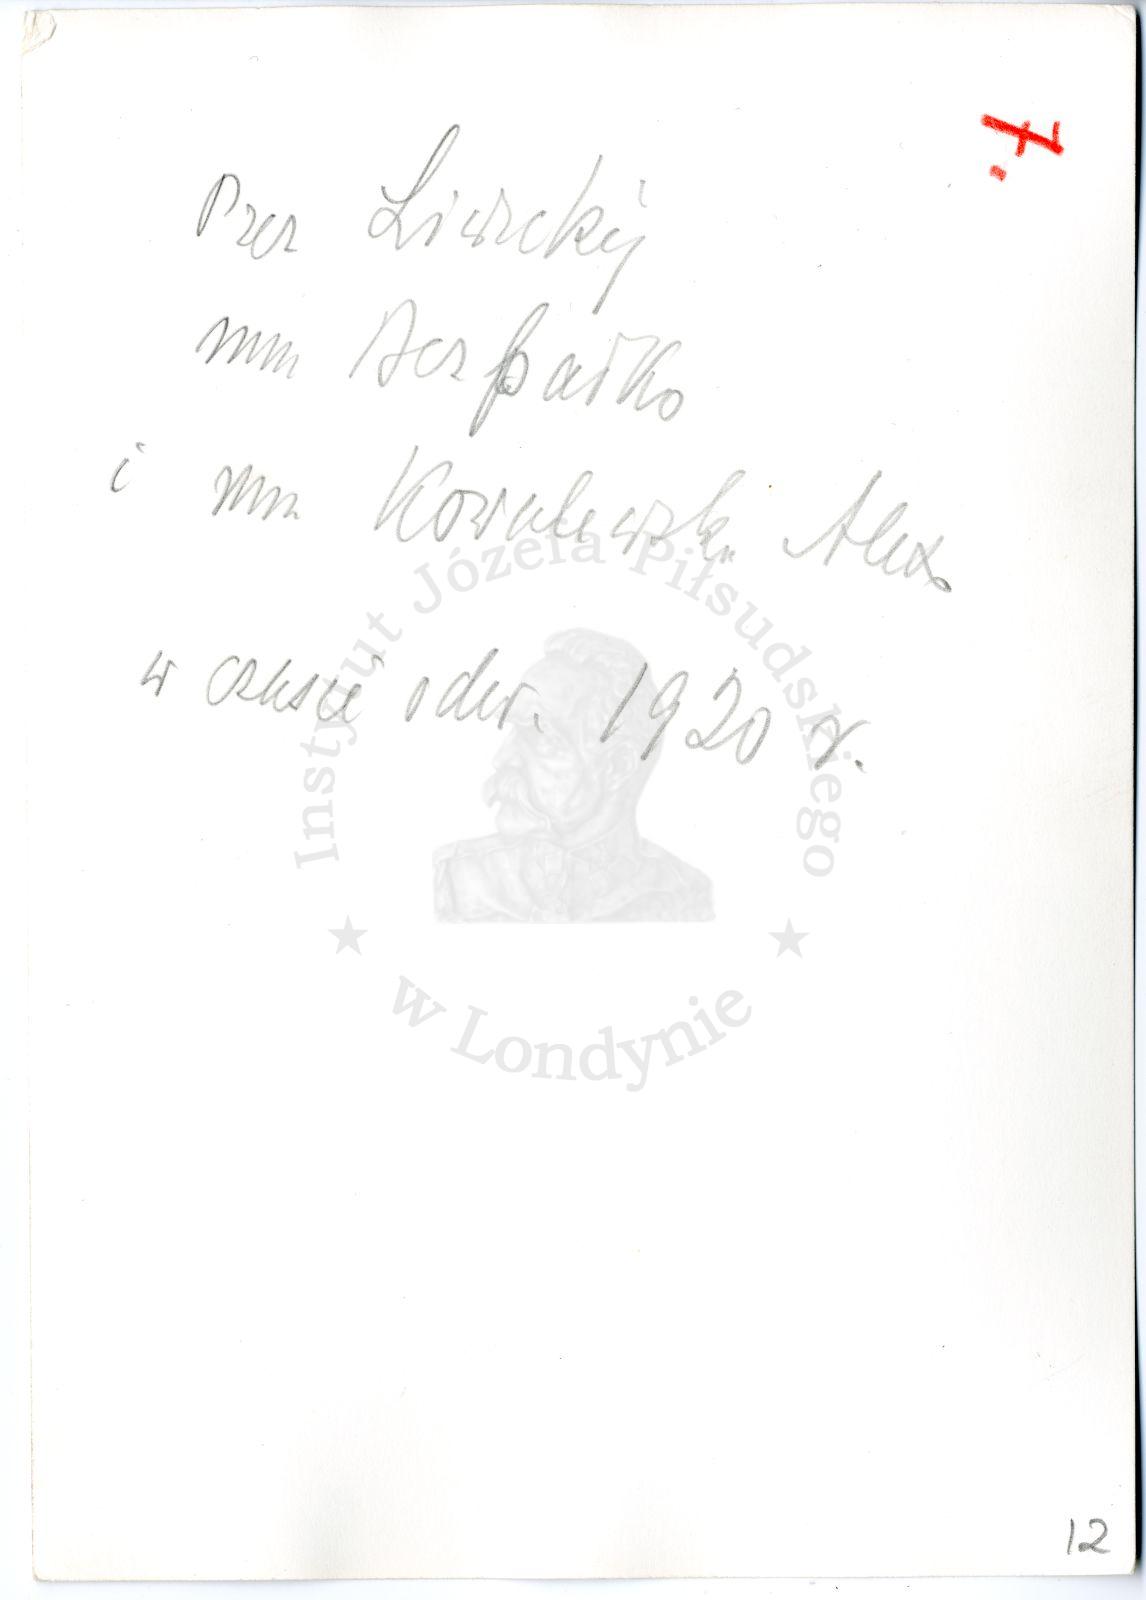 7.
Prez Liwickij
min Bezpałko
i min Kowalewski Alex.
w czasie odwr. 1920 r.
Instytut Józefa Piłsudskiego
★ ★
w Londynie
12